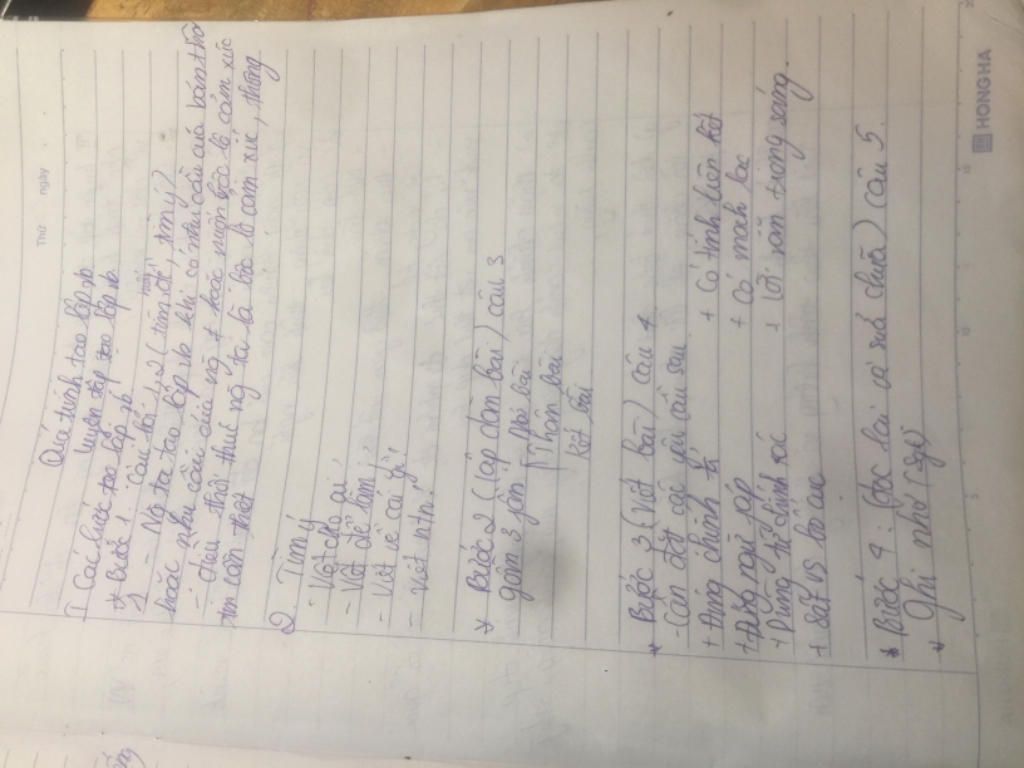 Thứ ngày
Quá trình tạo lập vb
Luyện tập tạo lập vb
I Các bước tạo lập vb
* Bước 1: câu hỏi 1, 2 (tìm đề, tìm ý)
1 - Ng ta tạo lập vb khi có nhu cầu của bản thân
hoặc nhu cầu của ng ≠ hoặc
- điều thôi thúc ng ta là là cảm xúc, thông
tin cần thiết
2. Tìm ý
- Viết cho ai?
- Viết để làm?
- Viết về cái gì?
- Viết ntn.
* Bước 2 (lập dàn bài) câu 3
gồm 3 phần: Mở bài
Thân bài
Kết bài
* Bước 3 (Viết bài) câu 4
- Cần đạt các yêu cầu sau
+ Đúng chính tả + Có tính liên kết
+ Đúng ngữ pháp + Có mạch lạc
+ Dùng từ chính xác + Lời văn trong sáng.
+ Sát vs bố cục
* Bước 4: (đọc lại và sửa chữa) câu 5
* Ghi nhớ (sgk)
HONG HA